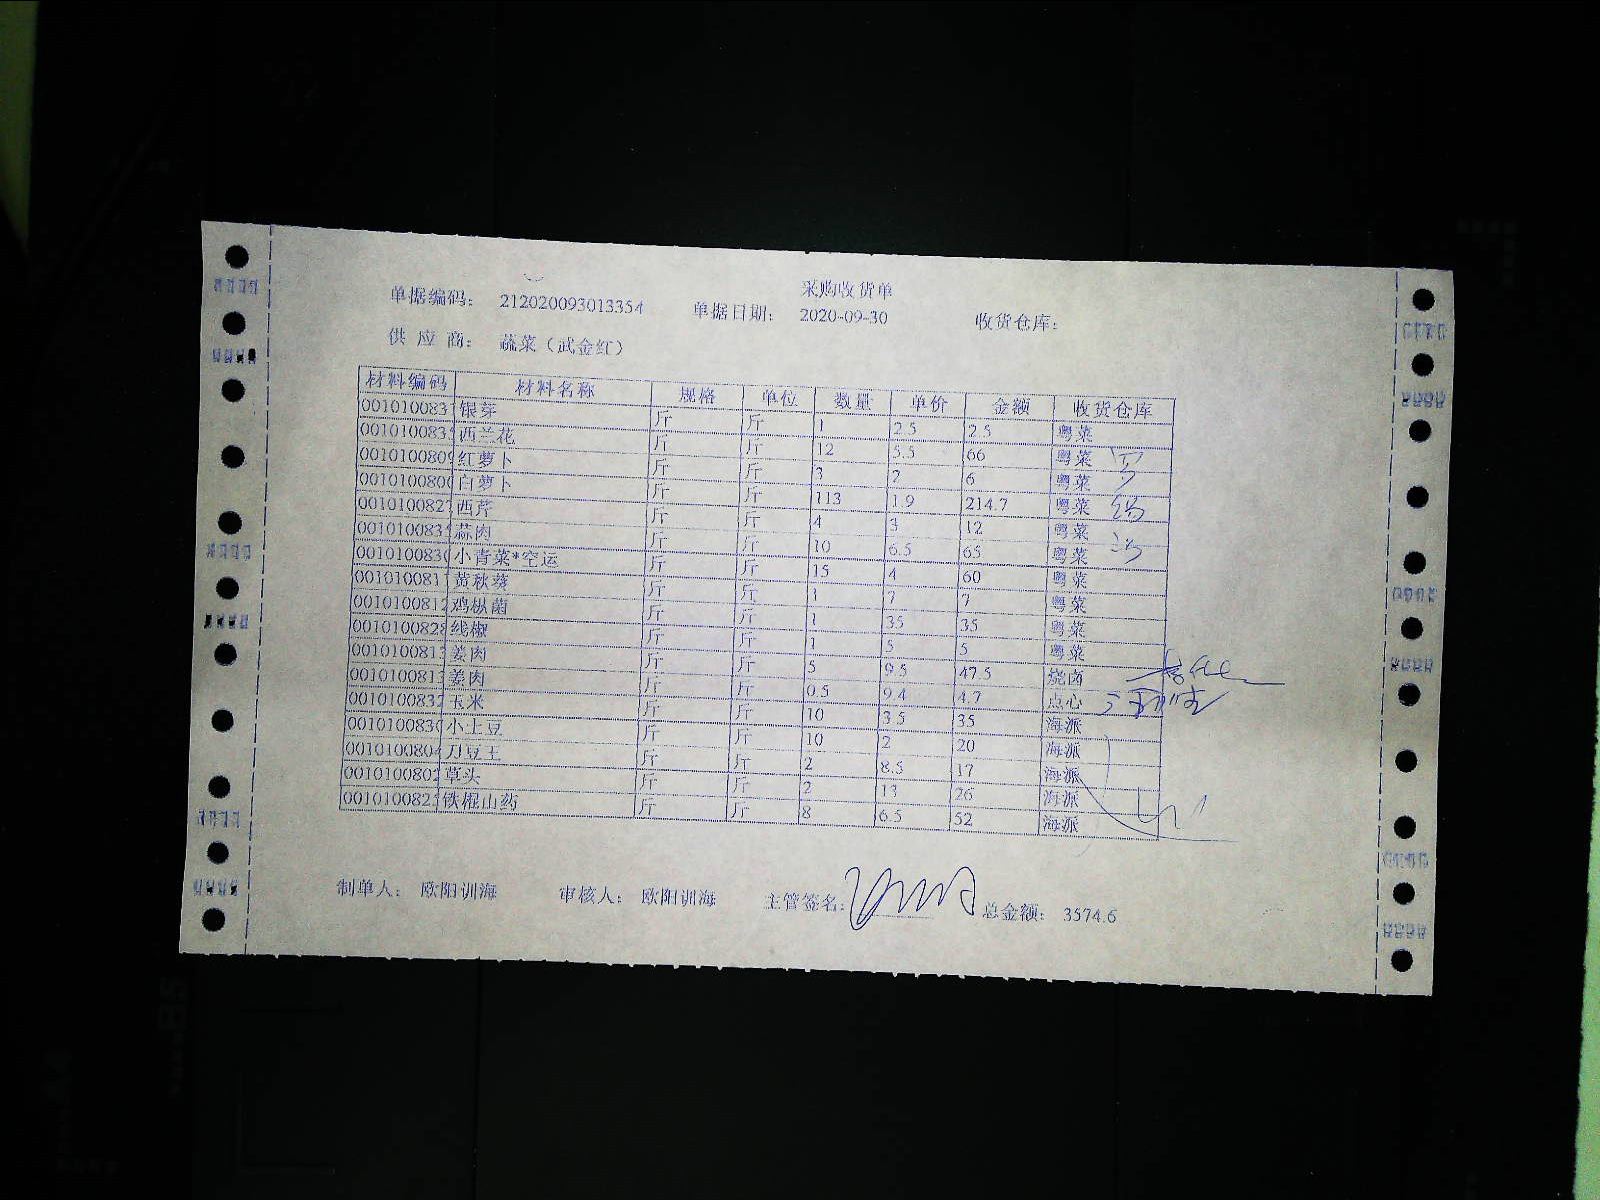 采购收货单
单据编码： 212020093013354 单据日期： 2020-09-30 收货仓库：
供 应 商： 蔬菜（武金红）
材料编码 材料名称 规格 单位 数量 单价 金额 收货仓库
0010100831 银芽 斤 斤 1 2.5 2.5 粤菜
001010083 西兰花 斤 斤 12 5.5 66 粤菜
0010100809 红萝卜 斤 斤 3 2 6 粤菜
0010100800 白萝卜 斤 斤 113 1.9 214.7 粤菜
001010082 西芹 斤 斤 4 3 12 粤菜
001010083 蒜肉 斤 斤 10 6.5 65 粤菜
001010083 小青菜*空运 斤 斤 15 4 60 粤菜
001010081 黄秋葵 斤 斤 1 7 7 粤菜
0010100812 鸡枞菌 斤 斤 1 35 35 粤菜
0010100828 线椒 斤 斤 1 5 5 粤菜
0010100813 姜肉 斤 斤 5 9.5 47.5 烧卤
0010100813 姜肉 斤 斤 0.5 9.4 4.7 点心
0010100832 玉米 斤 斤 10 3.5 35 海派
0010100830 小土豆 斤 斤 10 2 20 海派
0010100804 刀豆王 斤 斤 2 8.5 17 海派
0010100802 草头 斤 斤 2 13 26 海派
001010082 铁棍山药 斤 斤 8 6.5 52 海派
制单人： 欧阳训海 审核人： 欧阳训海 主管签名： 总金额： 3574.6